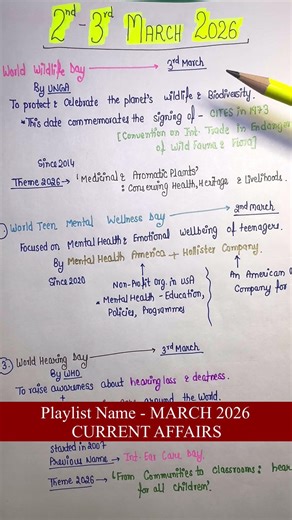 2nd - 3rd MARCH 2026
World Wildlife Day → 3rd March
By UNGA
To protect & Celebrate the planet's Wildlife & Biodiversity.
*This date commemorates the signing of - CITES in 1973
[Convention on Int. Trade In Endanger
of Wild Fauna & Flora]
Since 2014
Theme 2026 → 'Medicinal & Aromatic Plants'
: Conserving Health, Heritage & Livelihoods.
World Teen Mental Wellness Day → 2nd March
Focused on Mental Health & Emotional Wellbeing of teenagers.
By Mental Health America + Hollister Company.
Since 2020
Non-Profit Org. in USA
* Mental Health - Education,
Policies, Programmes
An American
Company for
3. World Hearing Day → 3rd March
By WHO
To raise awareness about hearing loss & deafness.
around the World.
Playlist Name - MARCH 2026
CURRENT AFFAIRS
Started in 2007
Previous Name → Int. Ear Care Day.
Theme 2026 → 'From Communities to classrooms : hear
for all children'.